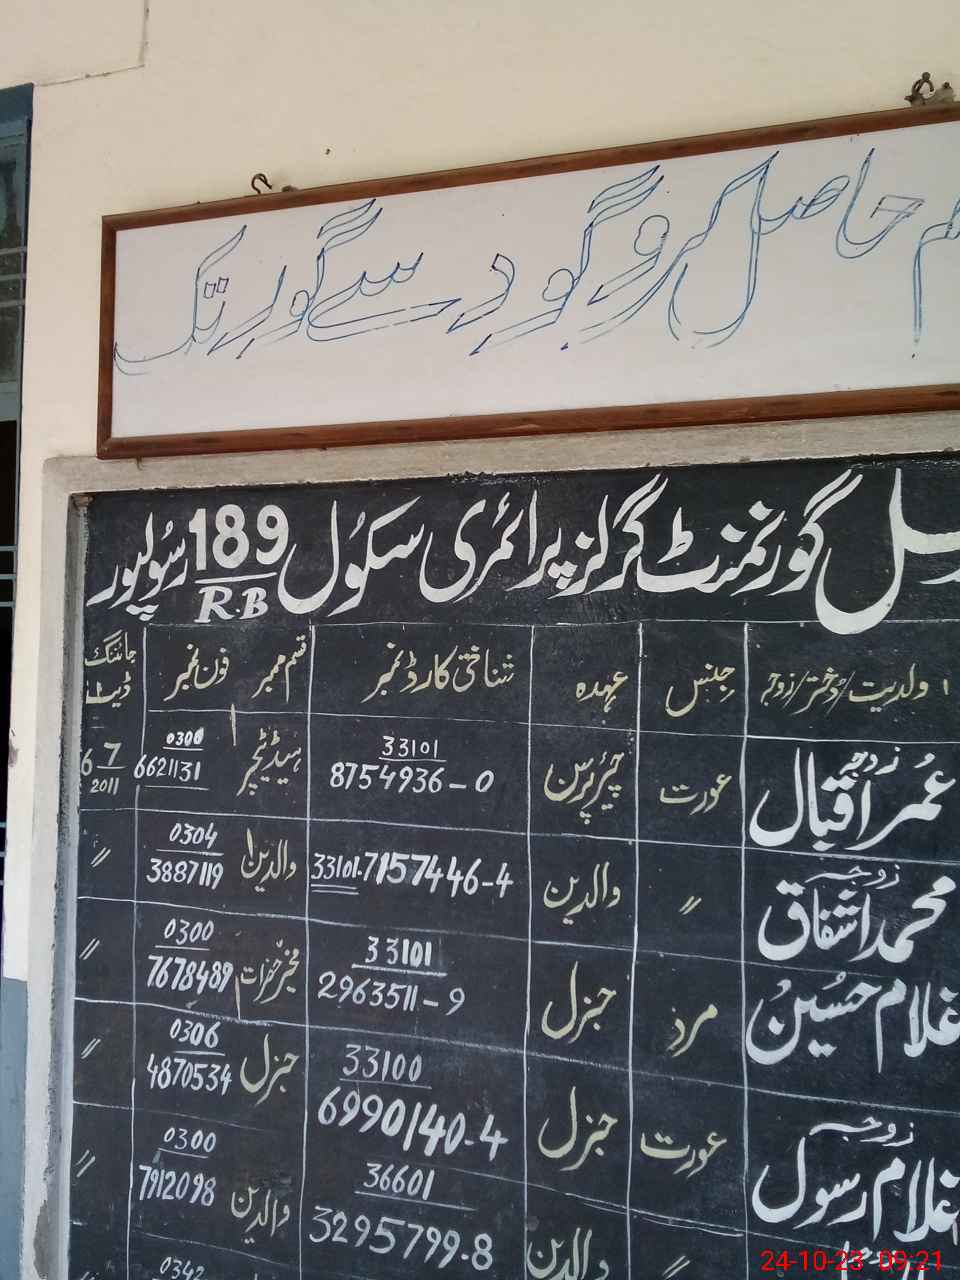 حاصل کرو گود سے گور تک
گورنمنٹ گرلز پرائمری سکول 189 رسولپور
R.B
ولدیت/دختر/زوجہ جنس عہدہ شناختی کارڈ نمبر قسم ممبر فون نمبر جائننگ ڈیٹ
زوجہ عمر اقبال عورت چیئرپرسن 33101 8754936-0 ہیڈ ٹیچر 0300 6621131 6-7 2011
زوجہ محمد اشفاق 〃 والدین 33101-7157446-4 والدین 0304 3887119 〃
غلام حسین مرد جنرل 33101 2963511-9 مخیر حضرات 0300 7678489 〃
زوجہ غلام رسول عورت جنرل 33100 6990140-4 جنرل 0306 4870534 〃
〃 والدین 36601 3295799-8 والدین 0300 7912098 〃
0342
24-10-23 09:21